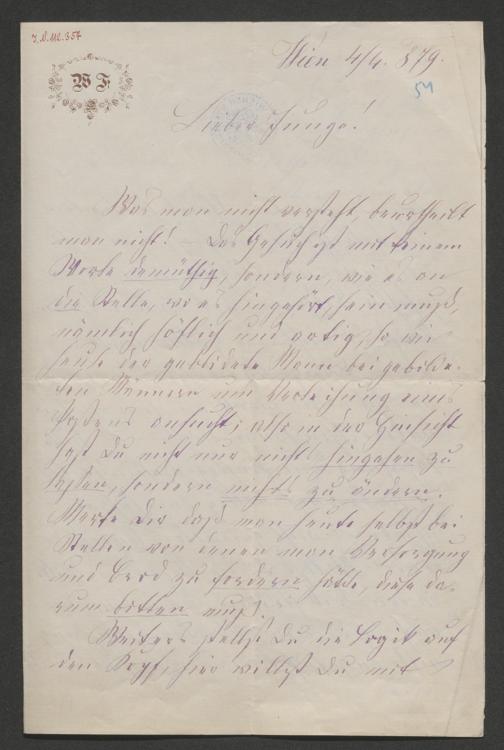 I.N. 111.357
W F
Wien 4/4. 879.
54
Lieber Junge!
Was man nicht versteht, beurtheilt
man nicht! – Das Gesuch ist mit keinem
Worte demüthig, sondern, wie es an
die Stelle, wo es hingehört, sein muß,
nämlich höflich und artig, so wie
heute der gebildete Mann bei gebilde-
ten Männern um Verleihung eines
Postens ansucht; also in der Hinsicht
hast Du nicht nur nichts hingehen zu
lassen, sondern nichts zu ändern.
Merke Dir daß man heute selbst bei
Stellen von denen man Versorgung
und Brod zu fordern hätte, diese da-
rum bitten muß!
Weiters stellst Du die Logik auf
den Kopf, hier willst Du mit